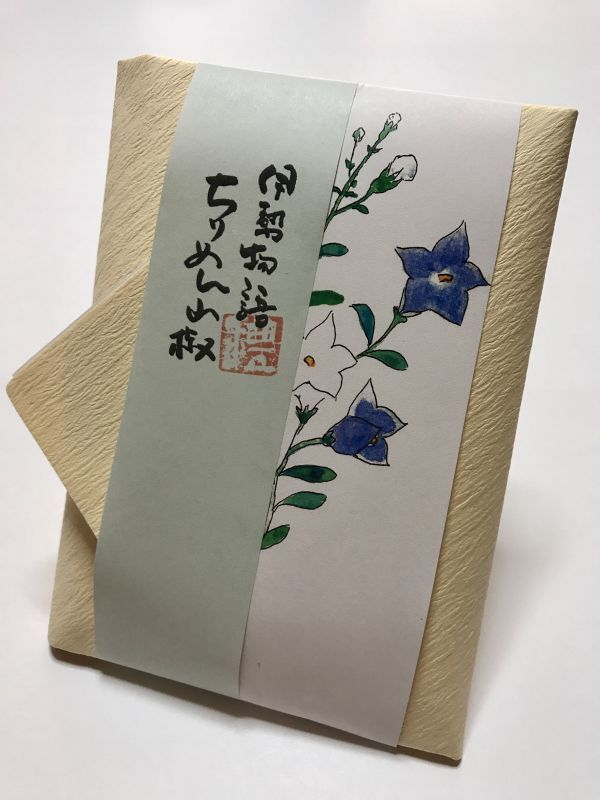 伊勢物語
ちりめん山椒